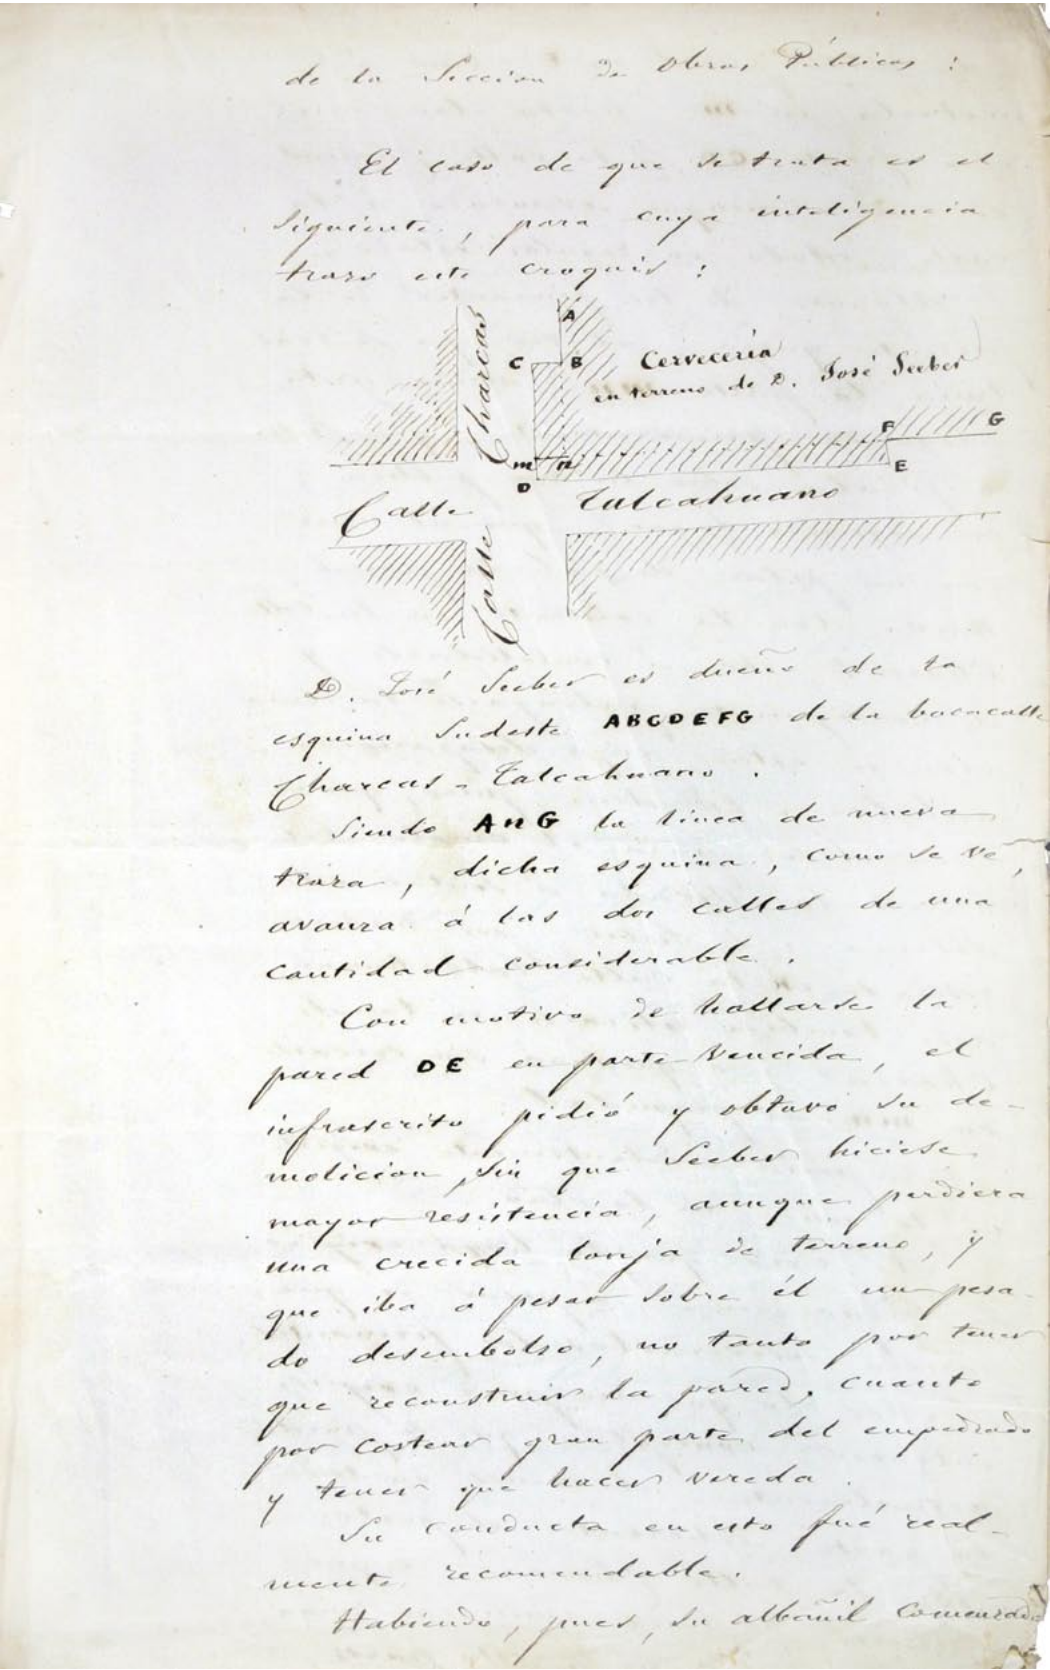 de la Seccion de Obras Públicas :
El caso de que se trata es el
siguiente, para cuya inteligencia
trazo este croquis :
A
C B
Cervecería
en terreno de D. José Seeber
Calle Charcas
F G
m n
E
D
Calle Talcahuano
D. José Seeber es dueño de la
esquina Sudeste ABCDEFG de la bocacalle
Charcas - Talcahuano .
Siendo AnG la línea de nueva
traza, dicha esquina, como se vé,
avanza á las dos calles de una
cantidad considerable .
Con motivo de hallarse la
pared DE en parte vencida, el
infrascrito pidió y obtuvo su de-
molicion, sin que Seeber hiciese
mayor resistencia, aunque perdiera
una crecida lonja de terreno, y
que iba á pesar sobre él un pesa-
do desembolso, no tanto por tener
que reconstruir la pared, cuanto
por costear gran parte del empedrado
y tener que hacer vereda .
Su conducta en esto fué real-
mente recomendable .
Habiendo, pues, su albañil comenzado